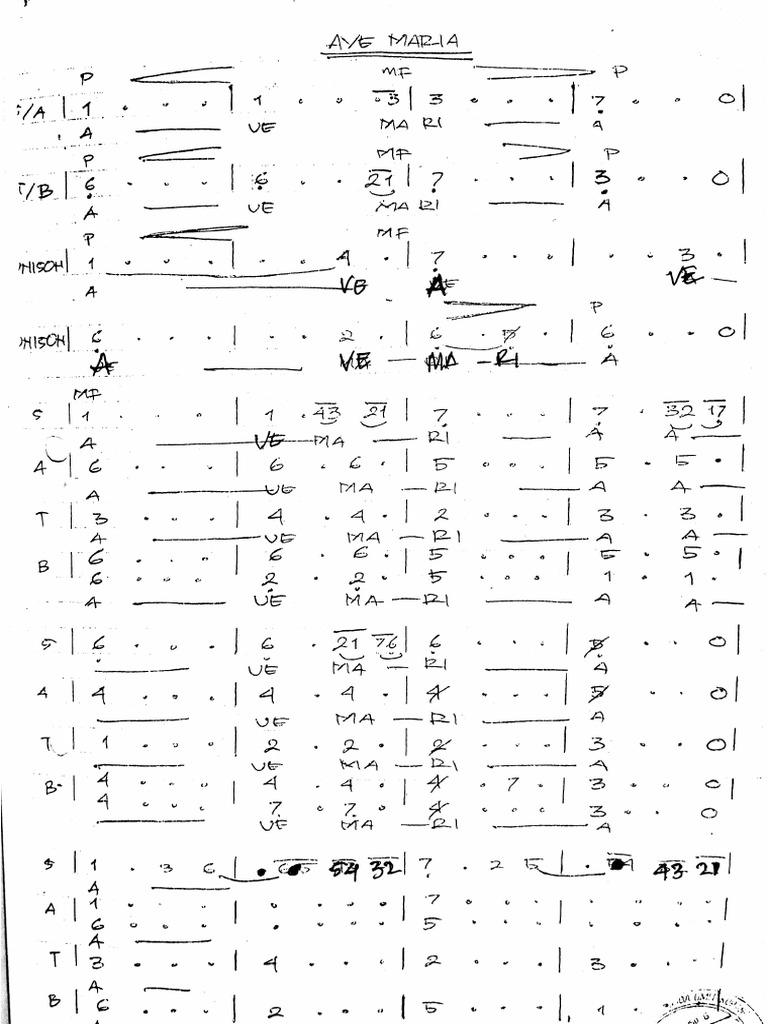 AVE MARIA
P MF P
S/A | 1 . . . | 1 . . 3 | 3 . . . | 7 . . 0 |
A VE MA RI A
P MF P
T/B | 6 . . . | 6 . . 21 | 7 . . . | 3 . . 0 |
A VE MA RI A
P MF
NISOH | 1 . . . | . . 4 . | 7 . . . | . . 3 . |
A VE A VE
P
NISOH | 6 . . . | . . 2 . | 6 . 5 . | 6 . . 0 |
A VE MA RI A
MF
S | 1 . . . | 1 . 43 21 | 7 . . . | 7 . 32 17 |
A VE MA RI A A
A | 6 . . . | 6 . 6 . | 5 . . . | 5 . 5 . |
A VE MA RI A A
T | 3 . . . | 4 . 4 . | 2 . . . | 3 . 3 . |
A VE MA RI A A
B | 6 . . . | 6 . 6 . | 5 . . . | 5 . 5 . |
6 . . . 2 . 2 . 5 . . . 1 . 1 .
A VE MA RI A A
S | 6 . . . | 6 . 21 76 | 6 . . . | 5 . . 0 |
VE MA RI A
A | 4 . . . | 4 . 4 . | 4 . . . | 5 . . 0 |
VE MA RI A
T | 1 . . . | 2 . 2 . | 2 . . . | 3 . . 0 |
VE MA RI A
B | 4 . . . | 4 . 4 . | 4 . 7 . | 3 . . 0 |
4 . . . 7 . 7 . 4 . . . 3 . . 0
VE MA RI A
S | 1 . 3 6 | . 54 32 | 7 . 2 5 | . 43 21
A
A | 1 . . . | . . . . | 7 . . . | . . . .
6 . . . . . . . 5 . . . . . . .
A
T | 3 . . . | 4 . . . | 2 . . . | 3 . . .
A
B | 6 . . . | 2 . . . | 5 . . . | 1 .
A